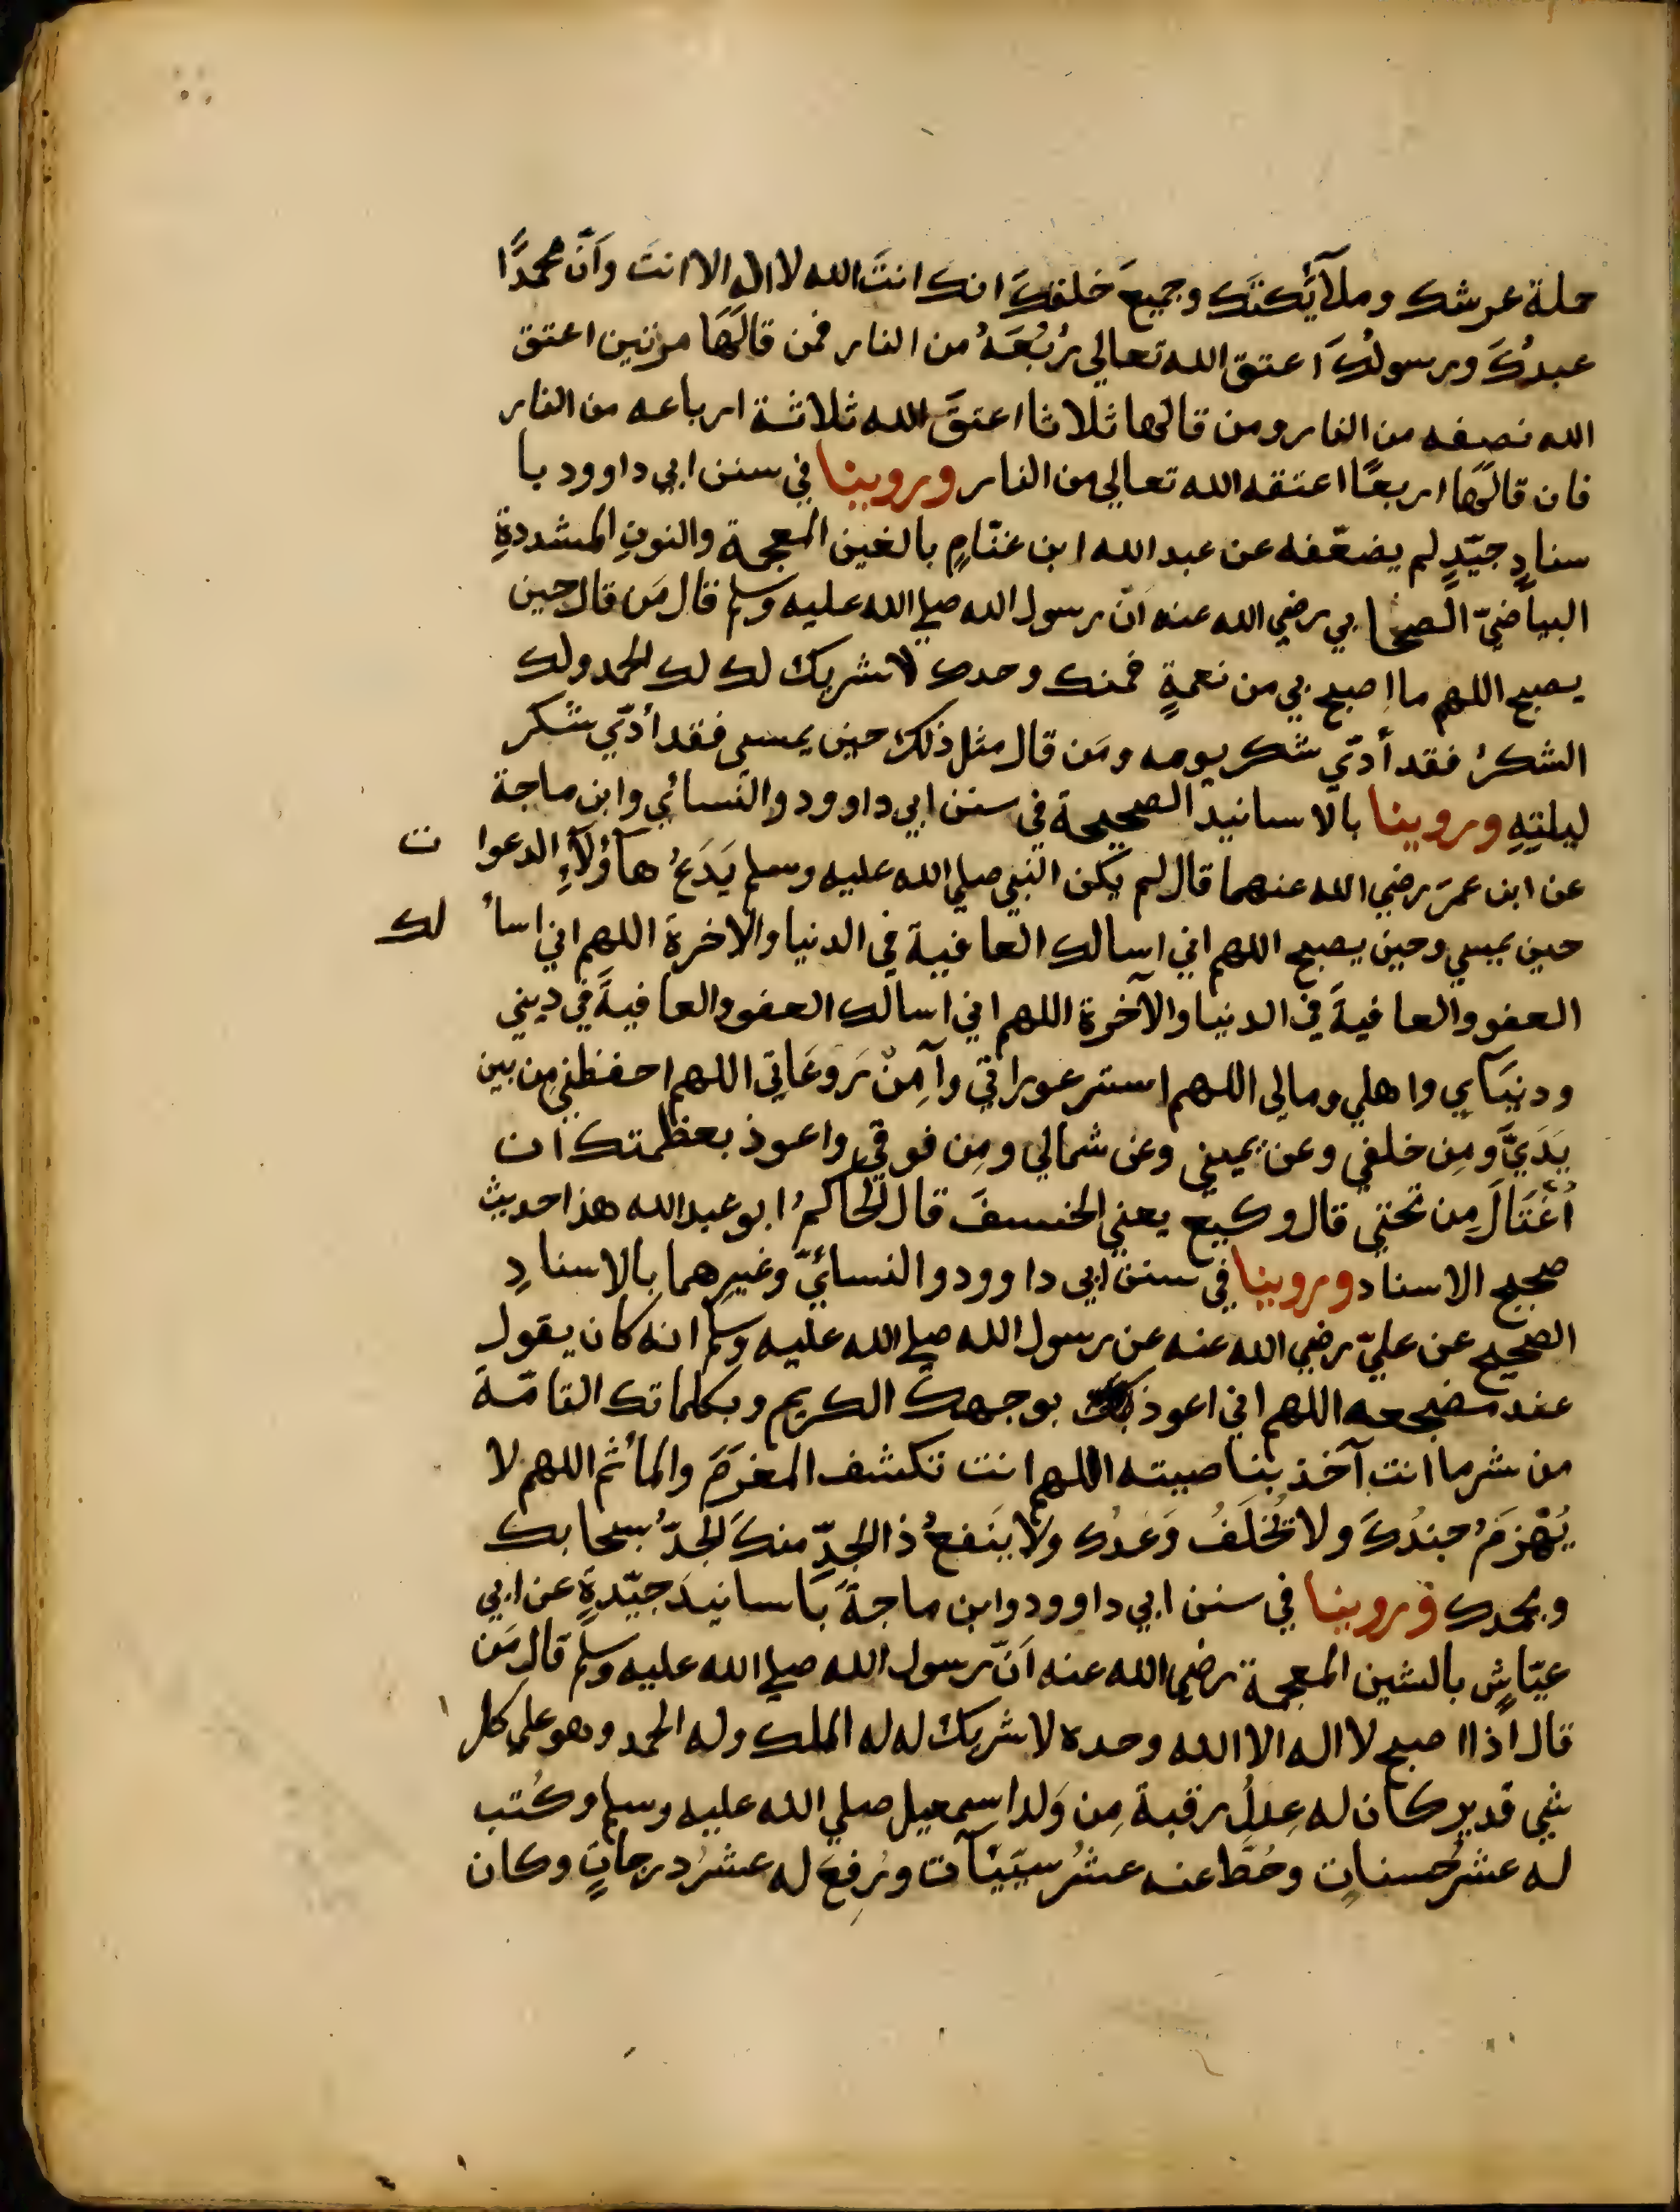 حملة عرشك وملآئكتك وجميعَ خلقكَ انك انتَ الله لا اله الا انت وأنّ محمدًا
عبدُكَ ورسولُكَ اعتق الله تعالي رُبُعَهُ من النار فمن قالَهَا مرتين اعتق
الله نصفه من النار ومن قالها ثلاثا اعتقَ الله ثلاثة ارباعه من النار
فان قالَهَا اربعًا اعتقه الله تعالي من النار وروينا في سنن ابي داوود با
سنادٍ جيّدٍ لم يضعّفه عن عبد الله ابن غنّامٍ بالغين المعجمة والنونِ المشددةِ
البياضيّ الصحابي رضي الله عنه انّ رسول الله صلي الله عليه وسلم قال مَن قال حين
يصبح اللهم ما اصبح بي من نعمةٍ فمنك وحدك لا شريك لك لك الحمد ولك
الشكرُ فقد أدّي شكر يومه ومَن قال مثل ذلك حين يمسي فقد أدّي شكر
ليلتِهِ وروينا بالاسانيد الصحيحة في سنن ابي داوود والنسائي وابن ماجة
عن ابن عمرَ رضي الله عنهما قال لم يكن النبي صلي الله عليه وسلم يَدَعُ هآؤلآءِ الدعوا ت
حين يمسي وحين يصبح اللهم اني اسالك العافية في الدنيا والاخرة اللهم اني اسأ لك
العفو والعافيةَ في الدنيا والآخرة اللهم اني اسالك العفو والعافيةَ في ديني
ودنيَاي واهلي ومالي اللهم استر عوراتي وآمِنْ رَوعَاتي اللهم احفظني مِن بين
يَدَيَّ ومِن خلفي وعن يميني وعن شمالي ومِن فوقي واعوذ بعظمتك ان
أُغْتَالَ مِن تحتي قال وكيع يعني الخسفَ قال الحاكمُ ابو عبد الله هذا حديث
صحيح الاسناد وروينا في سنن ابي داوود والنسائيّ وغيرِهما بالاسنادِ
الصحيح عن عليّ رضي الله عنه عن رسول الله صلي الله عليه وسلم انه كان يقول
عند مضجعه اللهم اني اعوذ بوجهك الكريم وبكلماتك التامّة
من شر ما انت آخذ بناصيته اللهم انت تكشف المغرَمَ والمأثم اللهم لا
يُهْزَمُ جندُكَ ولا يُخلَفُ وَعدُك ولا يَنفعُ ذا الجدِّ منكَ الجَدُّ سبحانك
وبحمدك وروينا في سنن ابي داوود وابن ماجةَ باسانيدَ جيّدةٍ عن ابي
عيّاشٍ بالشين المعجمة رضي الله عنه أنّ رسول الله صلي الله عليه وسلم قال مَن
قال اذا اصبح لا اله الا الله وحده لا شريك له له الملك وله الحمد وهو علي كل
شي قدير كان له عِدلُ رقبة مِن وَلد اسمعيل صلي الله عليه وسلم وكُتب
له عشرُ حسناتٍ وحُطَّ عنه عشرُ سيّيَآت ورُفِعَ له عشرُ درجاتٍ وكان